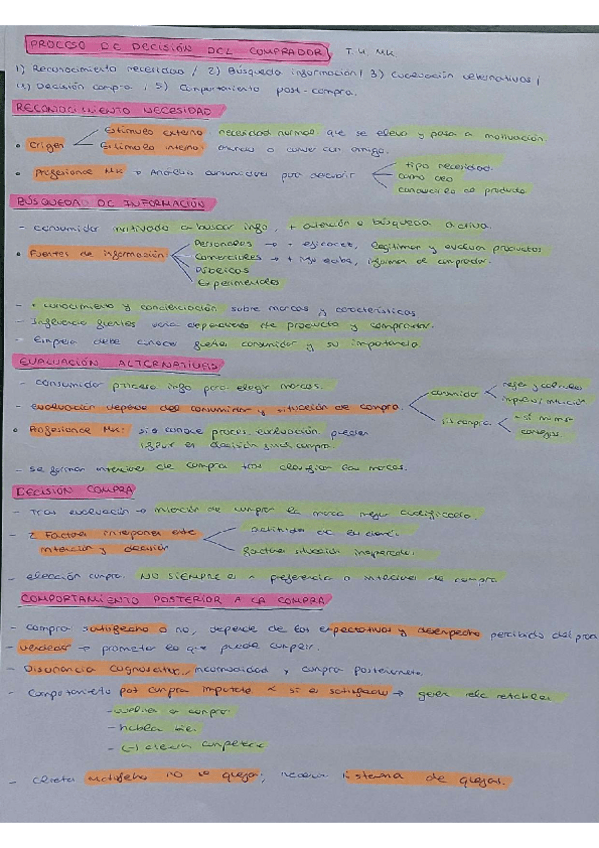 PROCESO DE DECISIÓN DEL COMPRADOR T.4. MK
1) Reconocimiento necesidad / 2) Búsqueda información / 3) Evaluación alternativas /
4) Decisión compra / 5) Comportamiento post-compra.
RECONOCIMIENTO NECESIDAD
• Origen Estímulo externo: necesidad normal que se eleva y pasa a motivación.
Estímulo interno: anuncio o conver con amigo.
• Profesionales MK → Análisis consumidor para descubrir tipo necesidad.
como
producto
BÚSQUEDA DE INFORMACIÓN
- consumidor motivado a buscar info, + atención o búsqueda activa.
• Fuentes de información: Personales → + eficaces, legitiman y evalúan productos
Comerciales → + info recibe, informan al comprador.
Públicas
Experimentales
- + conocimiento y concienciación sobre marcas y características
- Influencia fuentes varía dependiendo de producto y comprador.
- Empresa debe conocer fuentes consumidor y su importancia
EVALUACIÓN ALTERNATIVAS
- consumidor procesa info para elegir marcas.
- evaluación depende del consumidor y situación de compra. consumidor
sit. compra
consejos
• Profesionales MK: si se conoce proces. evaluación pueden
influir en decisión compra.
- se forman intenciones de compra tras clasificar las marcas.
DECISIÓN COMPRA
- Tras evaluación → intención de comprar la marca mejor
- 2 Factores interponen entre
intención y decisión actitudes de
factores situación inesperados.
- elección compra. NO SIEMPRE es = preferencia o intención de compra
COMPORTAMIENTO POSTERIOR A LA COMPRA
- compra satisfecho o no, depende de las expectativas y desempeño percibido del
- vendedor → prometer lo que puede cumplir.
- Disonancia cognoscitiva, incomodidad y compra posterior
- Comportamiento post compra importante si es satisfecho →
- vuelven a comprar
- hablan bien
- (-) atención competencia
- cliente satisfecho no se queja; necesario sistema de quejas.